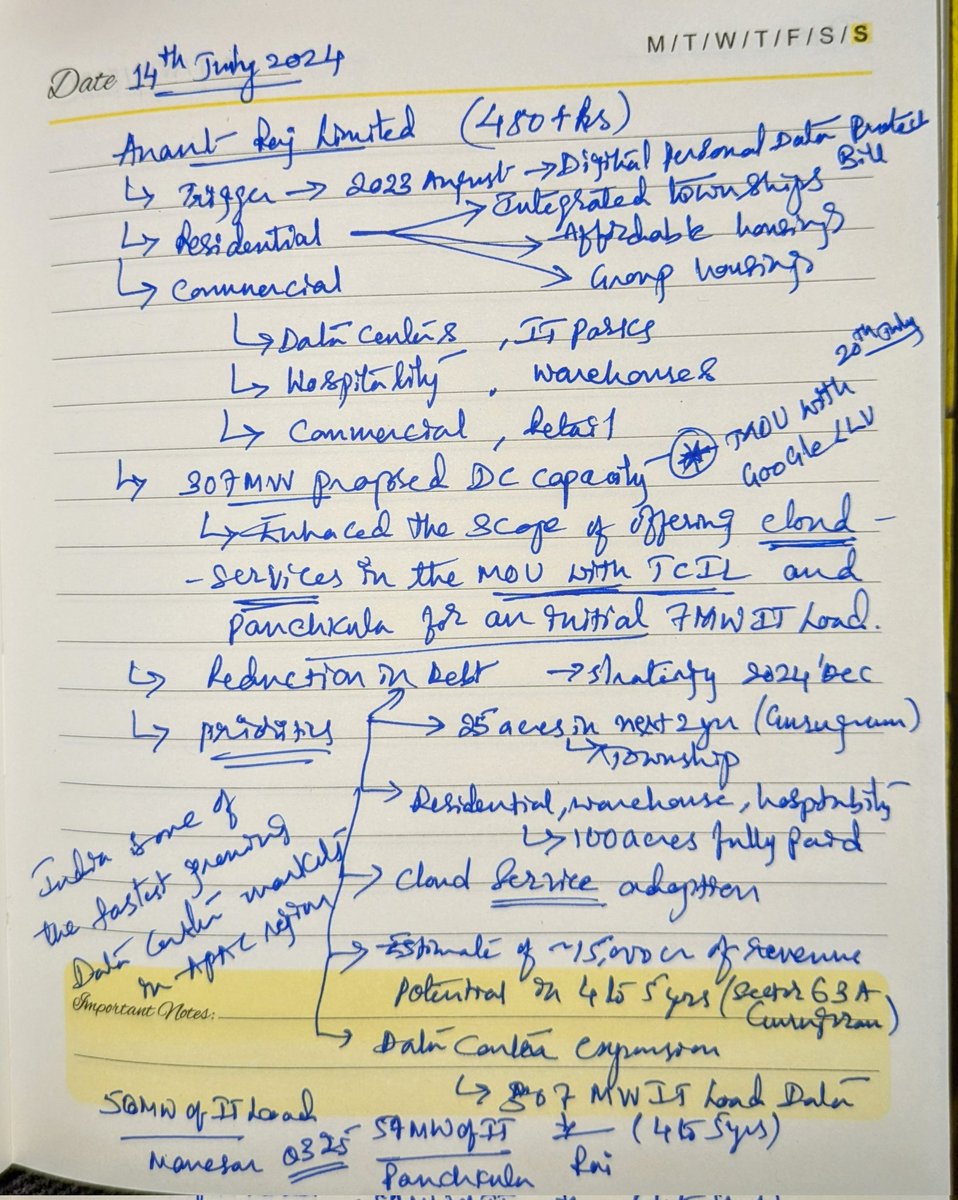 M/T/W/T/F/S/S
Date 14th July 2024
Anant Raj Limited (480+ Rs)
↳ Trigger → 2023 August → Digital Personal Data Protect Bill
↳ Residential → Integrated townships
→ Affordable housings
→ Group housings
↳ Commercial
↳ Data Centers, IT Parks
↳ Hospitality, warehouses
↳ Commercial, Retail
20th July
↳ 307MW proposed DC capacity - * MOU with
Google LLV
↳ Enhaced the scope of offering cloud -
- services in the MOU with TCIL and
Panchkula for an initial 7MW IT Load.
↳ Reduction in Debt → 2024 Dec
↳ priorities → 25 acres in next 2 yrs (Gurugram)
↳ Township
→ Residential, warehouse, hospitability
↳ 100 acres fully paid
→ Cloud Service adoption
India is one of
the fastest growing
Data Center markets
in APAC region
→ Estimate of ~15,000 cr of revenue
Potential in 4 to 5 yrs (Sector 63A
Gurugram)
Important Notes:
→ Data Center expansion
↳ 307 MW IT Load Data
50MW of IT Load
Manesar Q3 25
57MW of IT
Panchkula
* (4 to 5 yrs)
Rai